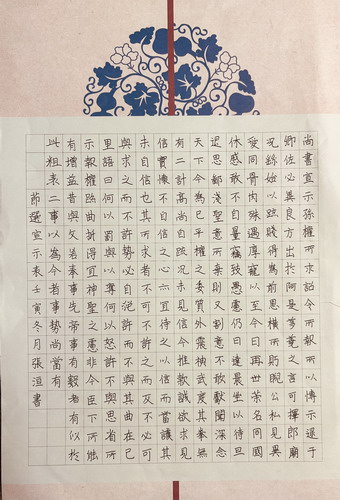 尚書宣示孫權所求詔令所報所以博示逮于
卿佐必冀良方出於阿是芻蕘之言可擇郎廟
況繇始以疏賤得為前恩橫所盱睨公私見異
愛同骨肉殊遇厚寵以至今日再世榮名同國
休慼敢不自量竊致愚慮仍日達晨坐以待旦
退思鄙淺聖意所棄則又割意不敢獻聞深念
天下今為已平權之委質外震神武度其拳無
有二計高尚自疏況未見信今推款誠欲求見
信實懷不自信之心亦宜待之以信而當護其
未自信也其所求者不可不許之而反不必可
與求之而不許勢必自絕許而不與其曲在己
里語曰何以罰與以奪何以怒許不與思省所
示報權疏曲折得宜神聖之慮非今臣下所能
有增益昔與文若奉事先帝事有數者有似於
此粗表二事以為今者事勢尚當有
節選宣示表壬寅冬月張洹書